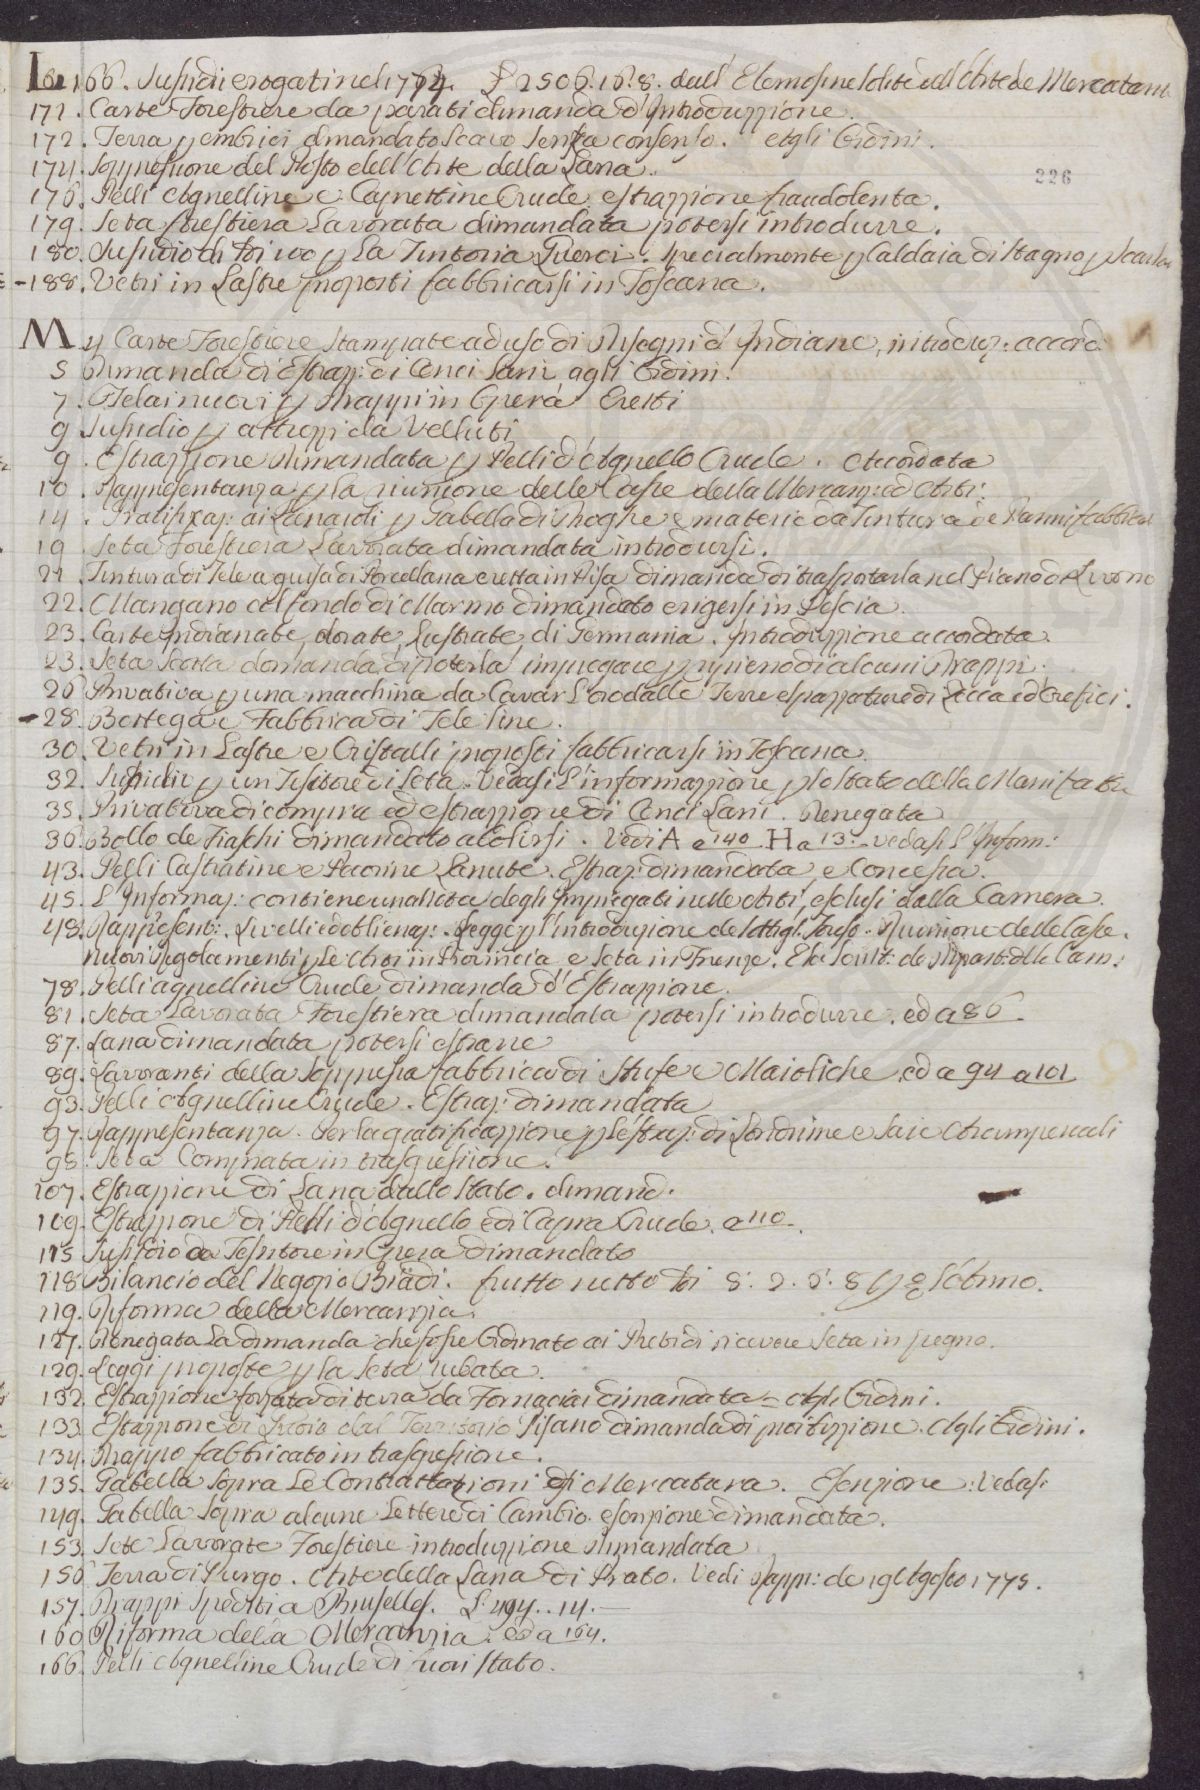 L a 166. Sussidii erogati nel 1774. £ 2506.16.8. dall' Elemosine solite dell' Arte de Mercatanti
171. Carte Forestiere da parati dimanda d'Introduzzione.
172. Terra p embrici dimandato scavo senza consenso. agli Ordini.
226
174. Soppressione del Posto dell'Arte della Lana.
176. Pelli Agnelline e Caprettine Crude, estrazzione fraudolenta.
179. Seta forestiera Lavorata dimandata potersi introdurre.
180. Sussidio di 100 p La Tintoria Querci. specialmente p Caldaia di Stagno p
188. Vetri in Lastre proposti fabbricarsi in Toscana.
M 4 Carte Forestiere stampate ad uso di Disegni d'Indiane, introduz: accord.
5 Dimanda di Estraz: di Cenci Lani agli Ordini.
7. Telai nuovi p Drappi in Opera Eretti
9 Sussidio p attrezzi da Velluti
9. Estrazzione dimandata p Pelli d'Agnello Crude. Accordata
10. Rappresentanza p la riunione delle Casse della Mercanz: ed Arti:
14. Gratificaz: ai Lanaioli p Gabella di Droghe e materie da Tintura de Panni fabbricati
19. Seta Forestiera Lavorata dimandata introdursi.
21. Tintura di Tele a guisa di Porcellana eretta in Pisa dimanda di trasportarla nel Piano di Livorno
22. Mangano col fondo di Marmo dimandato erigersi in Pescia.
23. Carte Indianate, dorate, Lustrate, di Germania. Introduzzione accordata.
23. Seta Scotta domanda di poterla impiegare p ripieno di alcuni Drappi.
26 Privativa p una macchina da Cavar L'oro dalle Terre e spazzature di Zecca ed Orefici.
28. Bottega e Fabbrica di Tele fine.
30. Vetri in Lastre e Cristalli proposti fabbricarsi in Toscana.
32. Sussidio p un Tessitore di Seta. Vedasi L'informazzione p lo stato della Manifattu
35. Privativa di compra ed estrazzione di Cenci Lani. Denegata
36. Bollo de Fiaschi dimandato abolirsi. Vedi A a 140. H a 13. vedasi L'Inform:
43. Pelli Castratine e Pecorine Lanute. Estraz: dimandata e Concessa.
45. L'Informaz: contiene una lista degli Impiegati nelle Arti, esclusi dalla Camera.
48. Rappresent: Livelli ed oblienaz: Legge p l'introduzione de Riunione delle Casse.
nuovi Regolamenti p Le Arti in Provincia e Seta in Firenze. de dlla Cam:
78. Pelli agnelline Crude dimanda d'Estrazzione.
81. Seta Lavorata Forestiera dimandata potersi introdurre. ed a 86.
87. Lana dimandata potersi estrarre
89. Lavoranti della soppressa fabbrica di Stufe e Maioliche, ed a 94 a 101
93. Pelli Agnelline Crude. Estraz: dimandata
97. Rappresentanza. Per la gratificazzione p L'estraz: di Londrine e Saie A
98. Seta Comprata in trasgressione.
107. Estrazzione di Lana dallo Stato. dimand.
109. Estrazzione di Pelli d'Agnello e di Capra Crude. a 110.
115 Sussidio da Tessitore in Opera dimandato
118 Bilancio del Negozio Bräidi. frutto netto 8. 2. 5. 8 p % l'Anno.
119. Riforma della Mercanzia.
127. Denegata La dimanda che fosse Ordinato ai Presti di ricevere Seta in pegno.
129. Leggi proposte p la Seta rubata.
132. Estrazzione forzata di terra da Fornaciai dimandata = agli Ordini.
133 Estrazzione di dal Territorio Pisano dimanda di proibizzione. Agli Ordini.
134. Drappo fabbricato in trasgressione.
135. Gabella sopra Le Contrattazioni di Mercatura. Esenzione: Vedasi
149. Gabella sopra alcune Lettere di Cambio. esenzione dimandata.
153. Sete Lavorate Forestiere introduzzione dimandata
156 Terra di Purgo. Arte della Lana di Prato. Vedi Rapp: de 19 Agosto 1775.
157. Drappi Spediti a Bruselles. £ 494..14.—
160 Riforma della Mercanzia. ed a 164.
166. Pelli Agnelline Crude di fuori Stato.